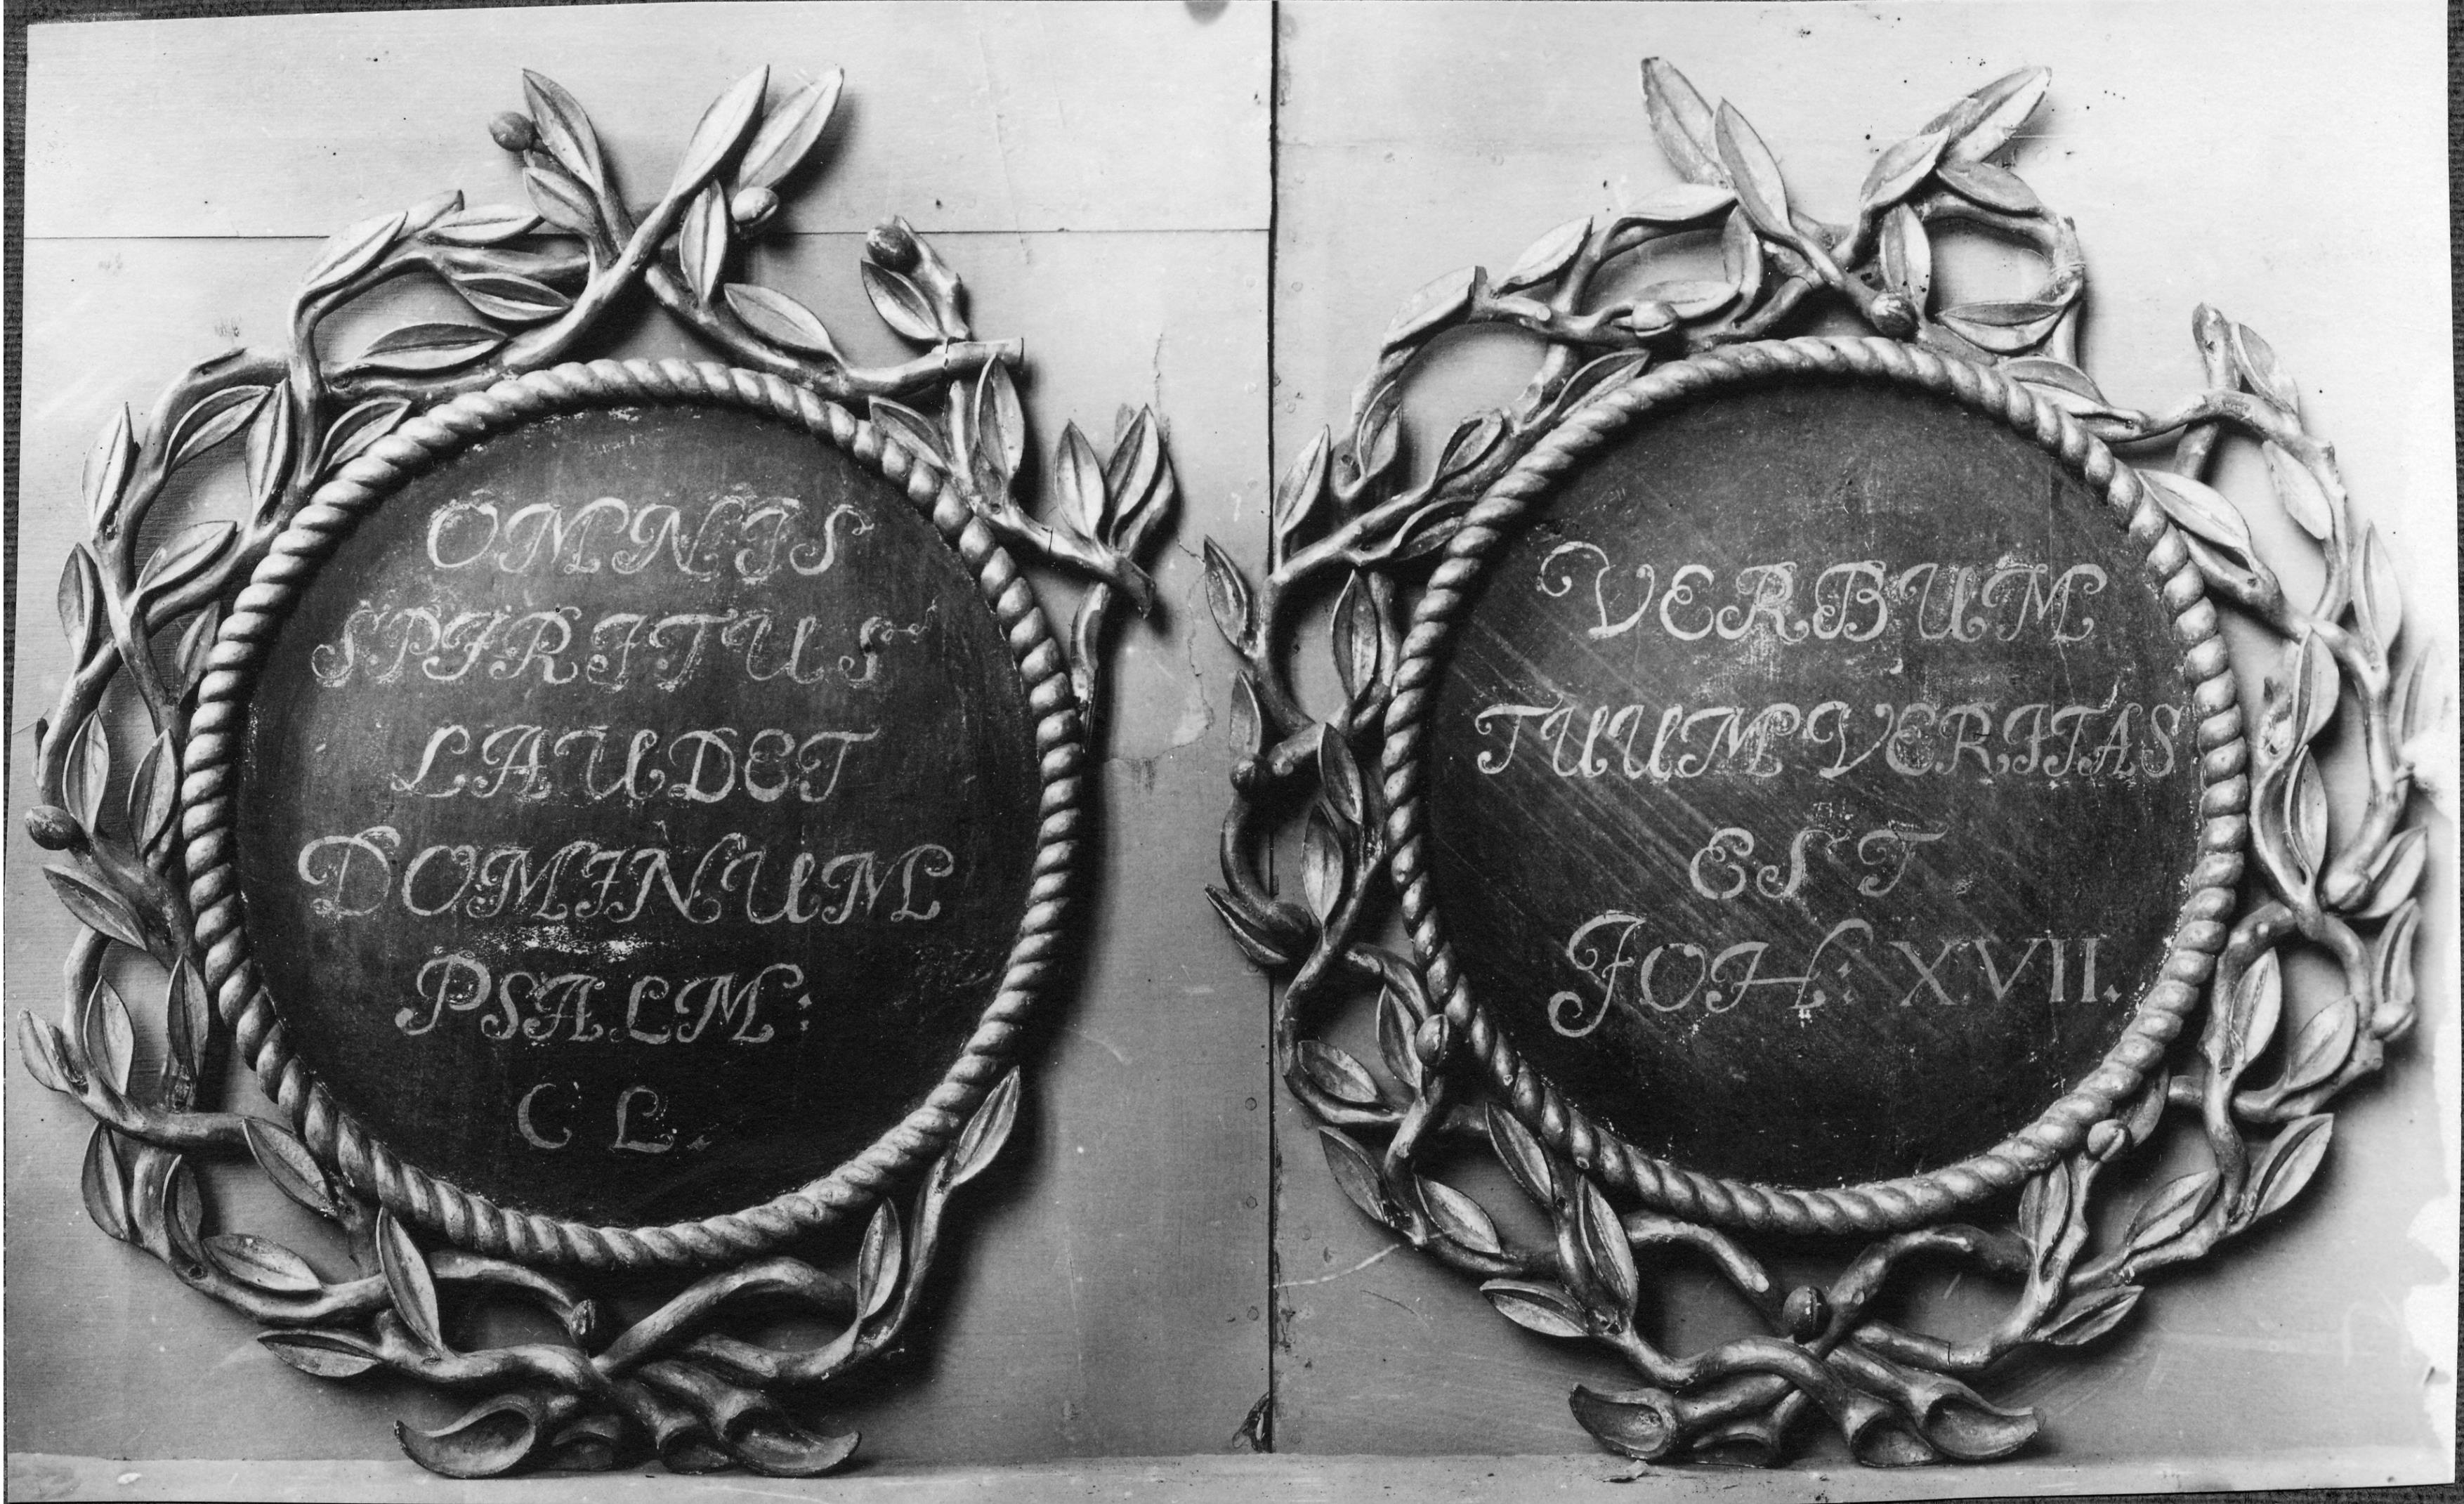 OMNIS
SPIRITUS
LAUDET
DOMINUM
PSALM:
CL.
VERBUM
TUUM VERITAS
EST.
JOH: XVII.